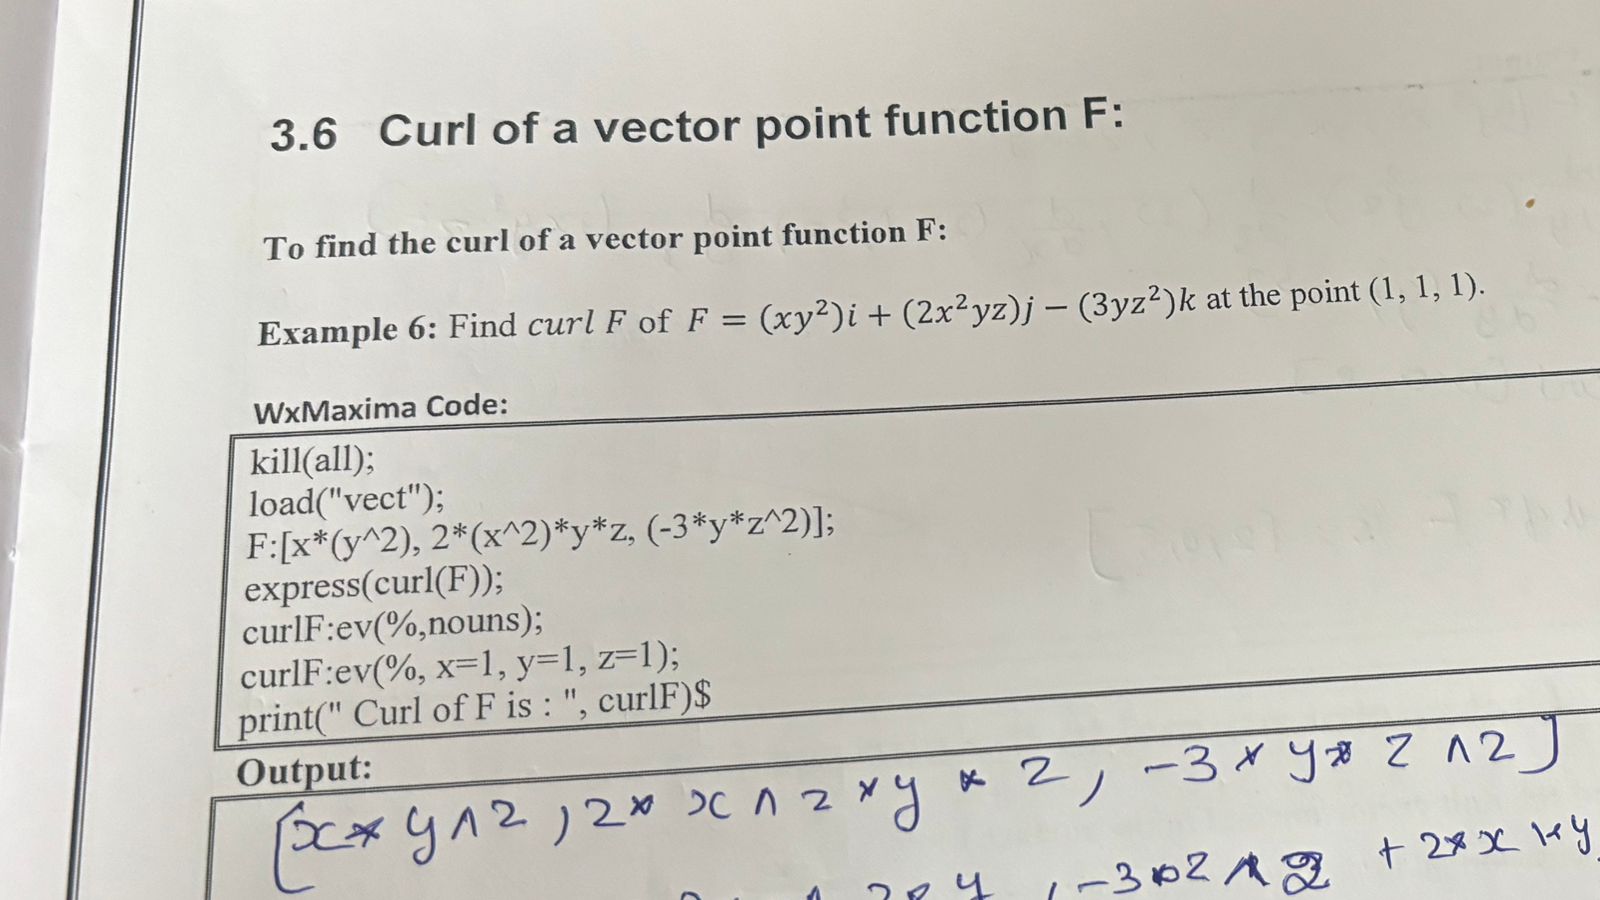 3.6 Curl of a vector point function F:
To find the curl of a vector point function F:
Example 6: Find curl F of F = (xy²)i + (2x²yz)j − (3yz²)k at the point (1, 1, 1).
WxMaxima Code:
kill(all);
load("vect");
F:[x*(y^2), 2*(x^2)*y*z, (-3*y*z^2)];
express(curl(F));
curlF:ev(%,nouns);
curlF:ev(%, x=1, y=1, z=1);
print(" Curl of F is : ", curlF)$
Output:
[x*y^2, 2*x^2*y*z, -3*y*z^2]
, -3*z^2 + 2*x*y